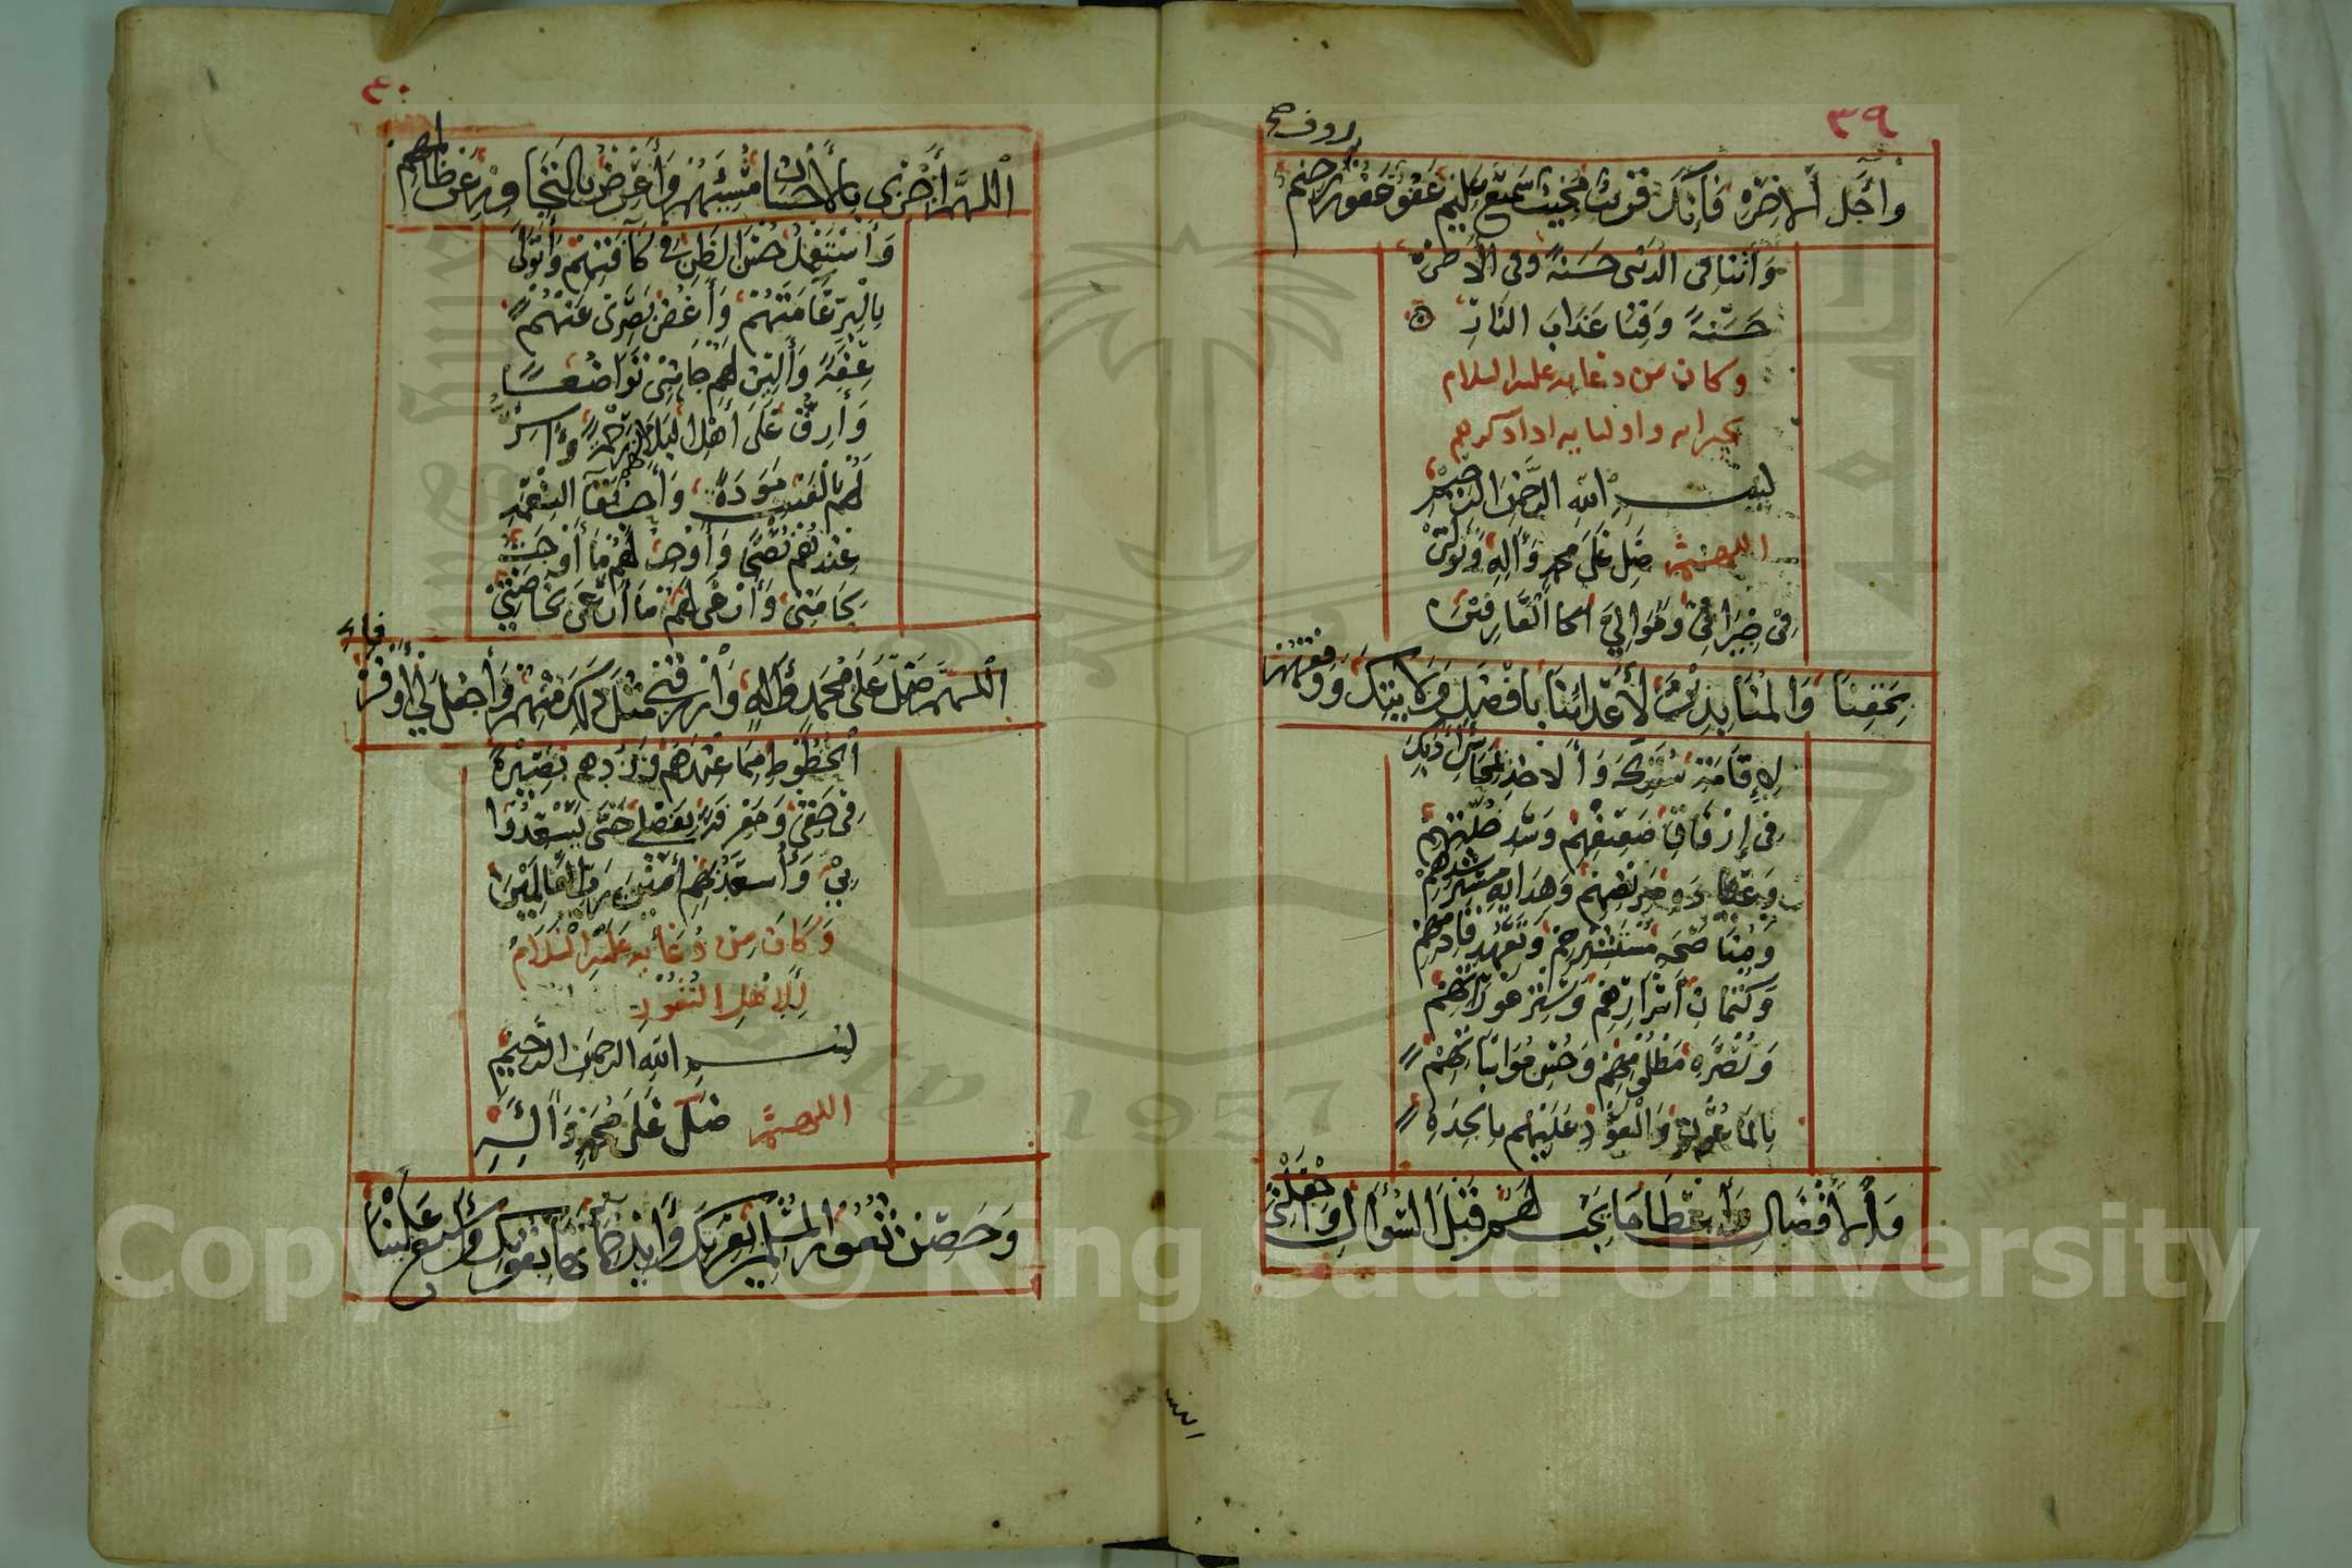 ٣٩
رووف صح
وأجل الاخره فانك قريب مجيب سميع عليم عفو غفور رحيم
واتنا في الدنيا حسنة وفي الاخرة
حسنة وقنا عذاب النار
وكان من دعايه عليه السلام
لجيرانه واوليايه اذا ذكرهم
بسم الله الرحمن الرحيم
اللهم صل على محمد واله وتولني
في جيراني وموالي العارفين
بحقنا والمنابذين لأعدائنا بافضل ولايتك ووفقهم
لإقامة سنتك والاخذ بمحاسن أدبك
في إرفاق ضعيفهم وسد خلتهم
وعيادة مريضهم وهداية مسترشدهم
ومناصحة مستشيرهم وتعهد قادمهم
وكتمان أسرارهم وستر عوراتهم
ونصرة مظلومهم وحسن مواساتهم
بالماعون والعود عليهم بالجده
والافضال وأعطا ما يجب لهم قبل السؤال واجعلني
اللهم
٤٠
اللهم أجزي بالاحسان مسيئهم وأعرض بالتجاوز عن ظالمهم
وأستعمل حسن الظن في كافتهم وأتولى
بالبر عامتهم وأغض بصري عنهم
عفة وألين لهم جانبي تواضعا
وأرق على أهل البلاء منهم رحمة وأسر
لهم بالغيب مودة وأحب بقا النعمة
عندهم نصحا وأوجب لهم ما أوجب
لحامتي وأرعى لهم ما أرعى لخاصتي
اللهم صل على محمد وآله وارزقني مثل ذلك منهم واجعل لي أوفر
الحظوظ فيما عندهم وزدهم بصيرة
في حقي ومعرفة بفضلي حتى يسعدوا
بي وأسعد بهم أمين رب العالمين
وكان من دعايه عليه السلام
لاهل الثغور
بسم الله الرحمن الرحيم
اللهم صل على محمد وآله
وحصن ثغور المسلمين بعزتك وأيد حماتها بقوتك وأسبغ علينا
Copyright © King Saud University
1957